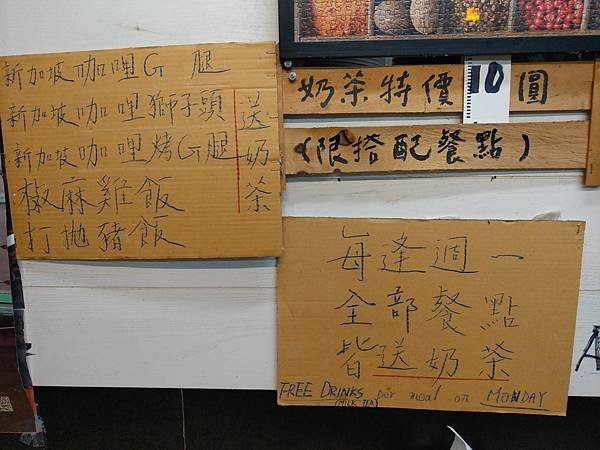 新加坡咖哩G腿
新加坡咖哩獅子頭
新加坡咖哩烤G腿
椒麻雞飯
打拋豬飯
送奶茶
奶茶特價10圓
(限搭配餐點)
每逢週一
全部餐點
皆送奶茶
FREE DRINKS per meal on MONDAY
(MILK TEA)